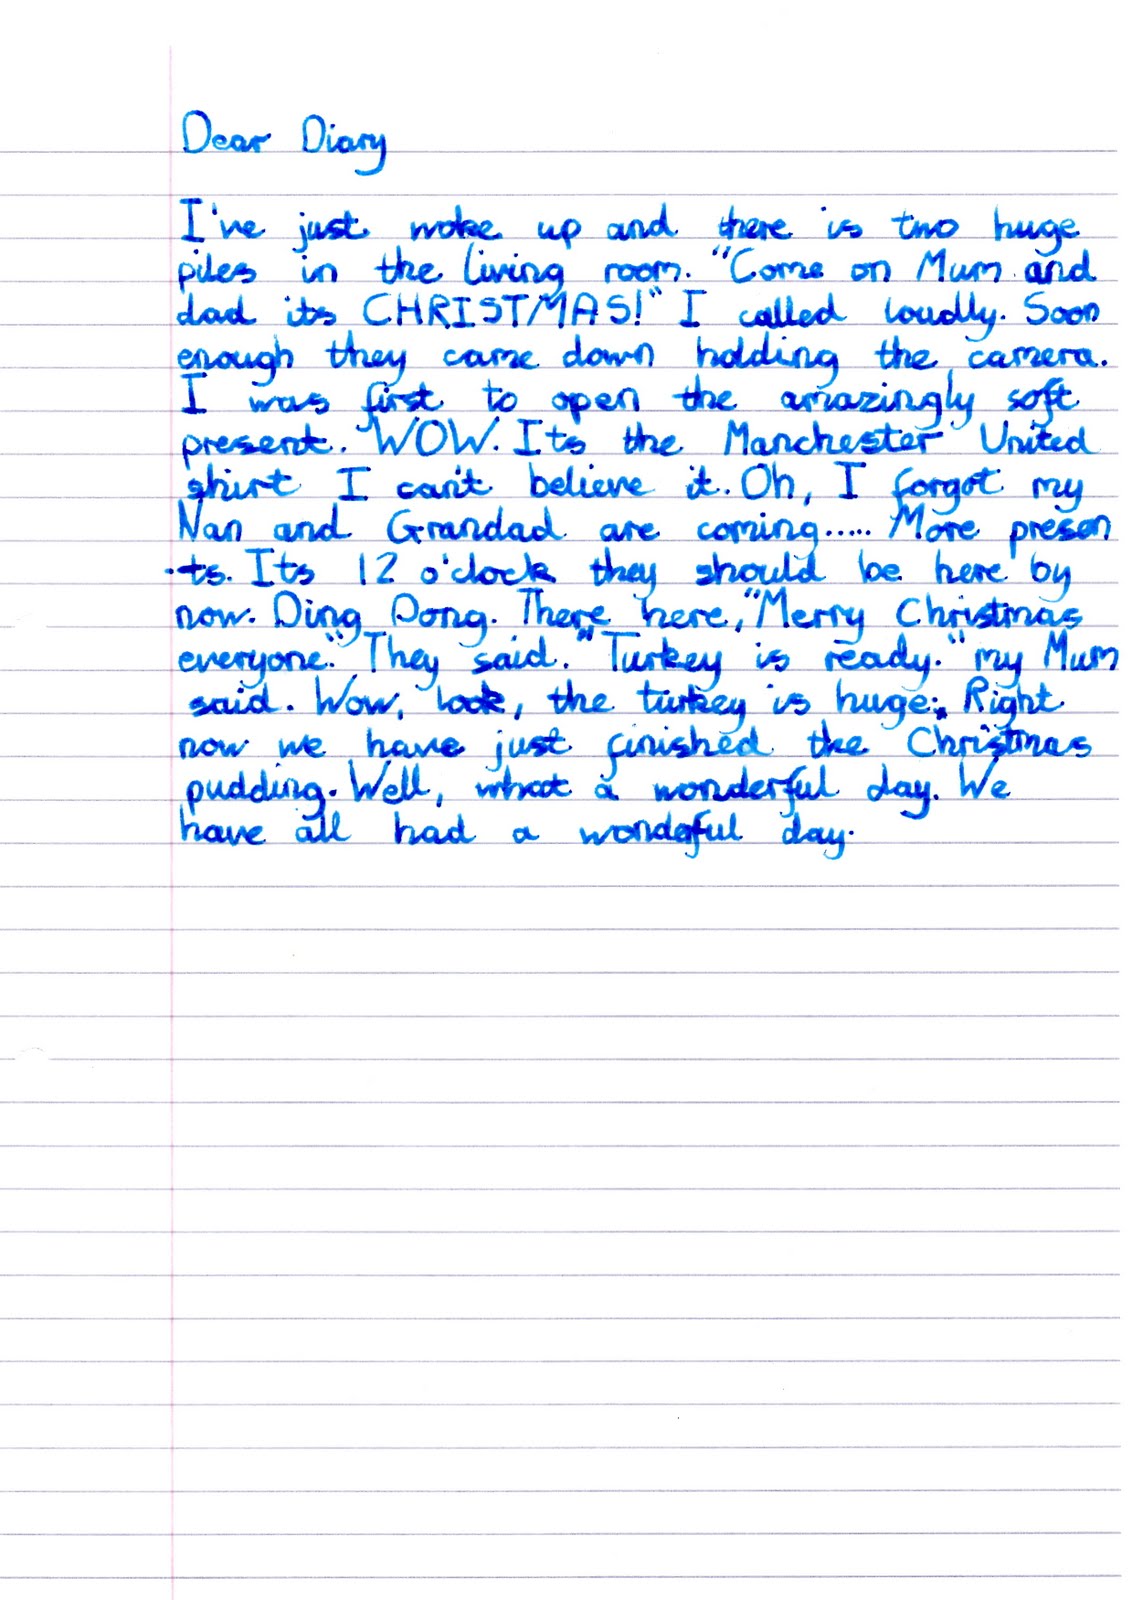 Dear Diary
I've just woke up and there is two huge
piles in the living room. "Come on Mum and
dad its CHRISTMAS!" I called loudly. Soon
enough they came down holding the camera.
I was first to open the amazingly soft
present. WOW. Its the Manchester United
shirt I can't believe it. Oh, I forgot my
Nan and Grandad are coming..... More presen
-ts. Its 12 o'clock they should be here by
now. Ding Dong. There here, "Merry Christmas
everyone." They said. "Turkey is ready." my Mum
said. Wow, look, the turkey is huge. Right
now we have just finished the Christmas
pudding. Well, what a wonderful day. We
have all had a wondeful day.